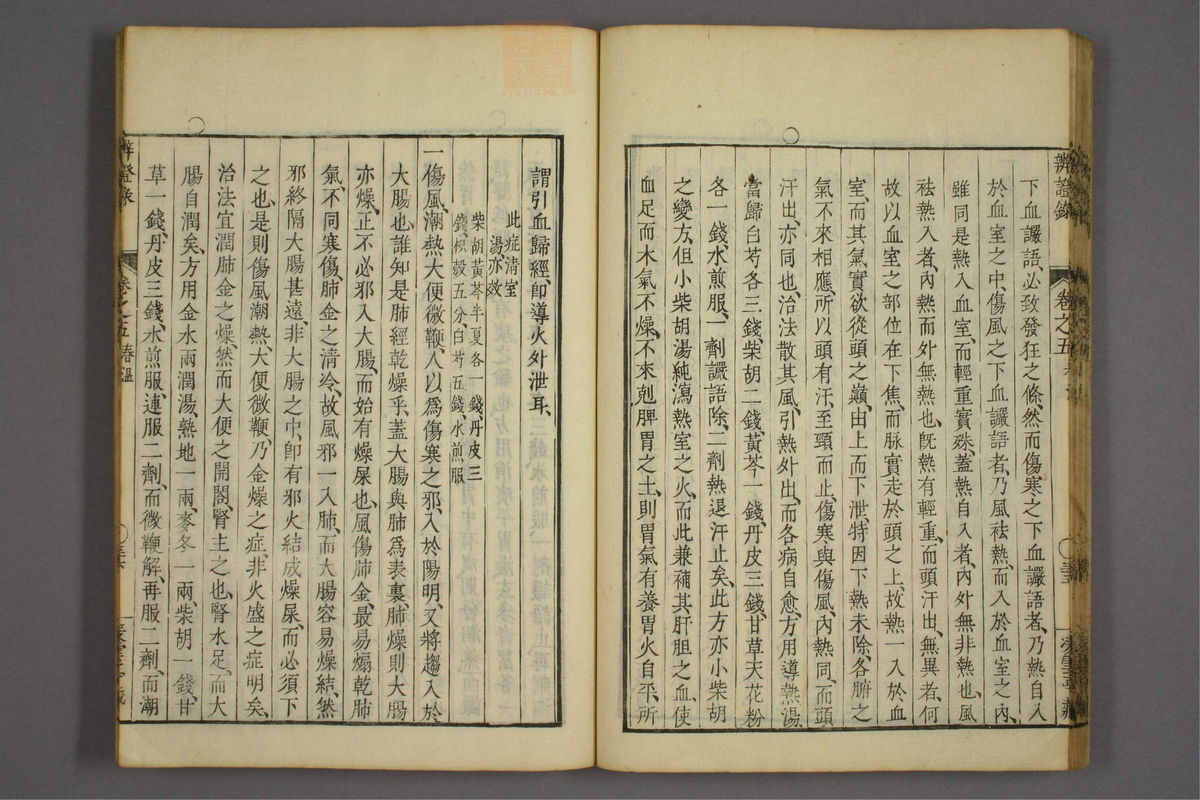 辨證錄 卷之五
下血讝語、必致發狂之條、然而傷寒之下血讝語者、乃熱自入
於血室之中、傷風之下血讝語者、乃風祛熱、而入於血室之內、
雖同是熱入血室、而輕重實殊、蓋熱自入者、內外無非熱也、風
祛熱入者、內熱而外無熱也、旣熱有輕重、而頭汗出、無異者、何
故以血室之部位在下焦、而脈實走於頭之上、故熱一入於血
室、而其氣實欲從頭之巔、由上而下泄、特因下熱未除、各腑之
氣不來相應、所以頭有汗、至頸而止、傷寒與傷風、內熱同、而頭
汗出、亦同也、治法散其風、引熱外出、而各病自愈、方用導熱湯、
當歸白芍各三錢、柴胡二錢、黃芩一錢、丹皮三錢、甘草天花粉
各一錢、水煎服、一劑讝語除、二劑熱退汗止矣、此方亦小柴胡
之變方、但小柴胡湯純瀉熱室之火、而此兼補其肝胆之血、使
血足而木氣不燥、不來剋脾胃之土、則胃氣有養、胃火自平、所
謂引血歸經、卽導火外泄耳、
此症清室
湯亦效
柴胡黃芩半夏各一錢、丹皮三
錢、枳殼五分、白芍五錢、水煎服
一傷風、潮熱大便微鞕、人以爲傷寒之邪、入於陽明、又將趨入於
大腸也、誰知是肺經乾燥乎、蓋大腸與肺爲表裏、肺燥則大腸
亦燥、正不必邪入大腸、而始有燥屎也、風傷肺金、最易煽乾肺
氣、不同寒傷、肺金之清冷、故風邪一入肺、而大腸容易燥結、然
邪終隔大腸甚遠、非大腸之中、卽有邪火結成燥屎、而必須下
之也、是則傷風潮熱、大便微鞕、乃金燥之症、非火盛之症明矣、
治法宜潤肺金之燥、然而大便之開闔、腎主之也、腎水足、而大
腸自潤矣、方用金水兩潤湯、熟地一兩、麥冬一兩、柴胡一錢、甘
草一錢、丹皮三錢、水煎服、連服二劑、而微鞕解、再服二劑、而潮
辨證錄 卷之五 春溫